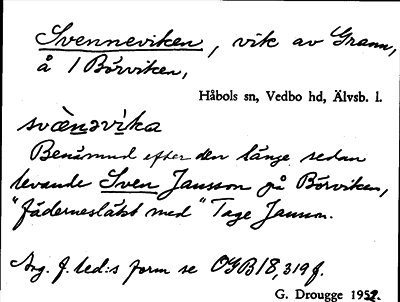 Svenneviken, vik av Grann,
å 1 Börviken,
Håbols sn, Vedbo hd, Älvsb. l.
svὲnəvi̇ka
Benämnd efter den länge sedan
levande Sven Jansson på Börviken,
"fädernesläkt med" Tage Janson.
Ang. f. led:s form se OGB 18, 319 f.
G. Drougge 1952.